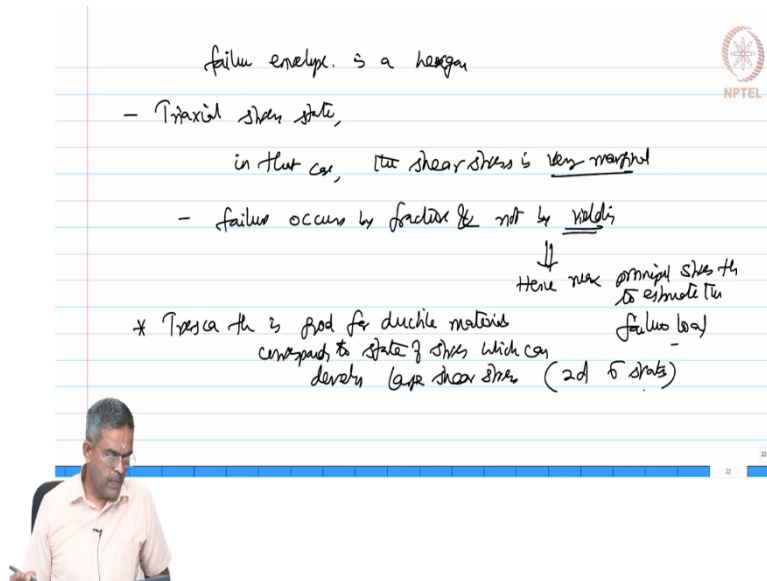 failure envelope. is a hexagon
NPTEL
- Triaxial stress state,
in that case, the shear stress is very marginal
- failure occurs by fracture & not by yielding
⇓
Hence max principal stress th
to estimate the
failure load
* Tresca th is good for ductile materials
corresponds to state of stress which can
develop large shear stress (2d σ state)
22
22